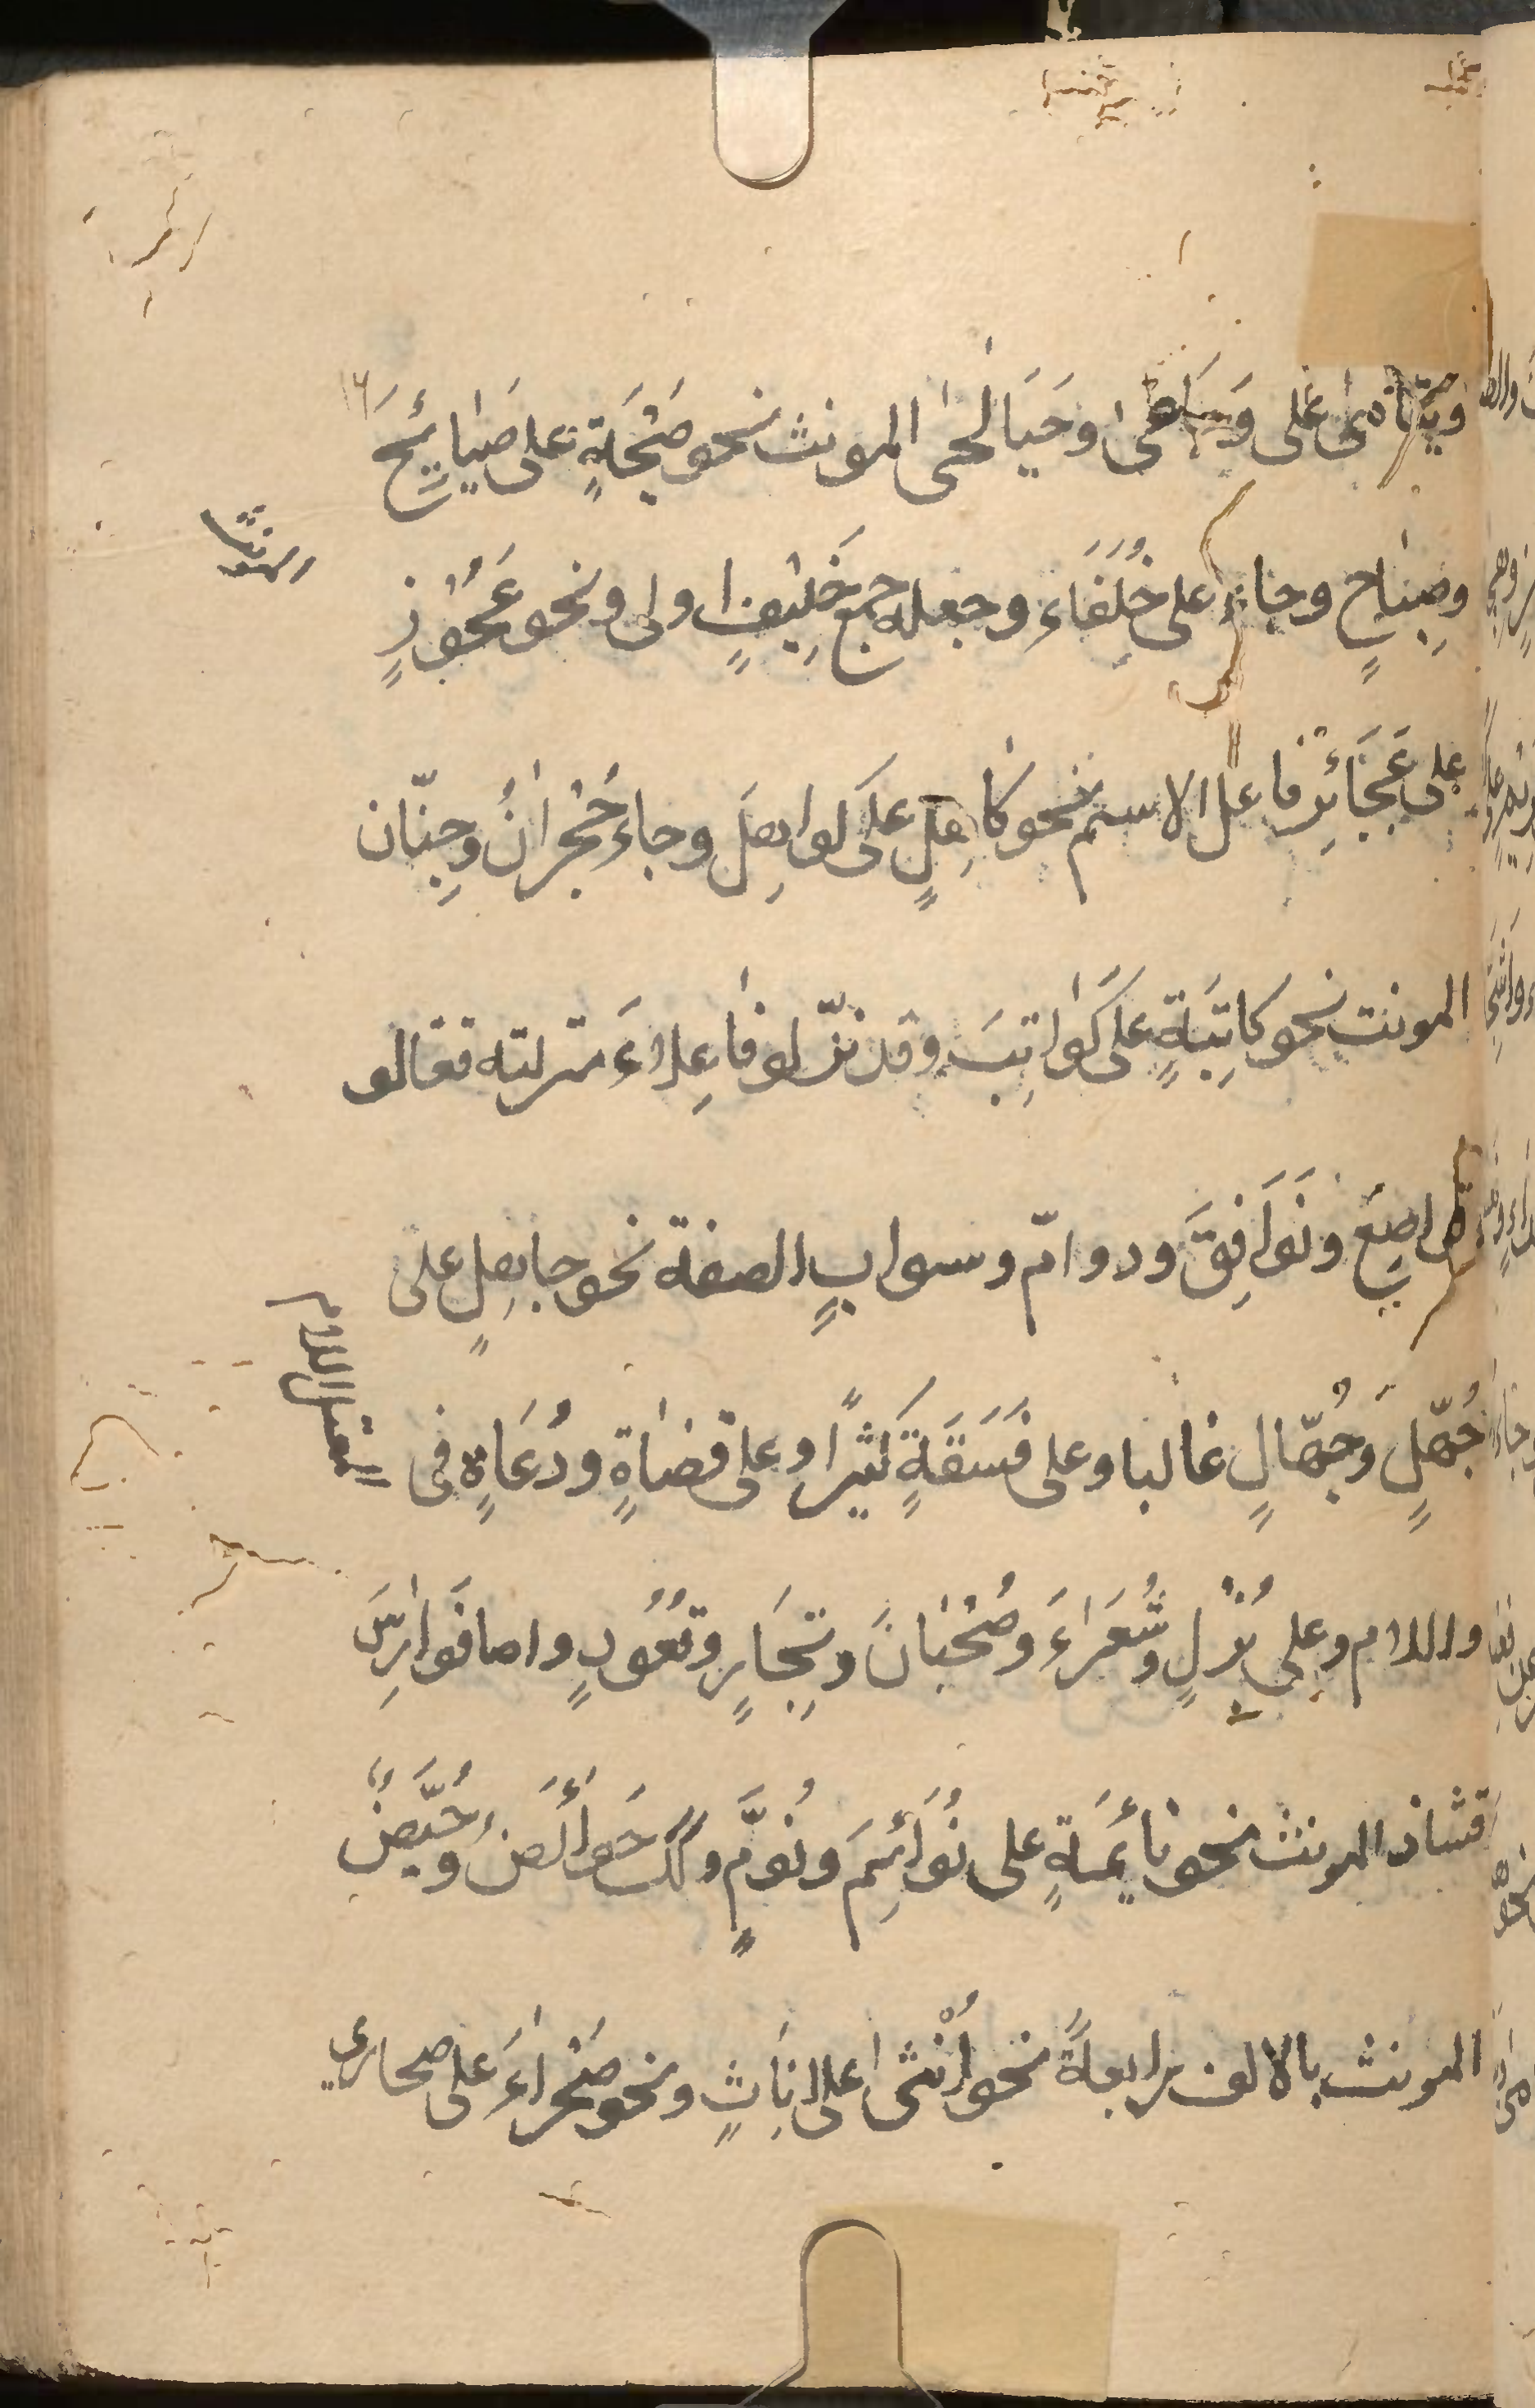 ويتامى على وجاعى وحباطى المونث نحو صَبْحَةٍ على صَبَائِحَ
وصِبَاحٍ وجاء على خُلَفَاء وجعله جمع خَلِيْفٍ اولى ونحو عَجُوْزٍ
على عَجَائِز فاعل الاسم نحو كاهِلٍ على كواهِلَ وجاء حُجْرَانُ وجِنّان
المونث نحو كاتِبَةٍ على كَوَاتِبَ وقد نزّلو فاعِلاءَ منزلته فقالو
قواصِعَ ونَوَافِقَ ودوامّ وسوابٍ الصفة نحو جاهِلٍ على
جُهّلٍ وَجُهّالٍ غالبا وعلى فَسَقَةٍ كثيرًا وعلى قضاةٍ ودُعَاةٍ فى
والام وعلى بُزْلٍ وشُعَرَاءَ وصُحْبَانَ وتِجَارٍ وقُعُودٍ واما فَوَارِسَ
فشاذ المونث نحو نائِمَةٍ على نُوَائِمَ ونُوَّمٍ وكذلك حَوَائضَ وحُيَّضٌ
المونث بالالف رابعةً نحو اُنْثى على اِنَاثٍ ونحو صَحْرَاءَ على صحاري